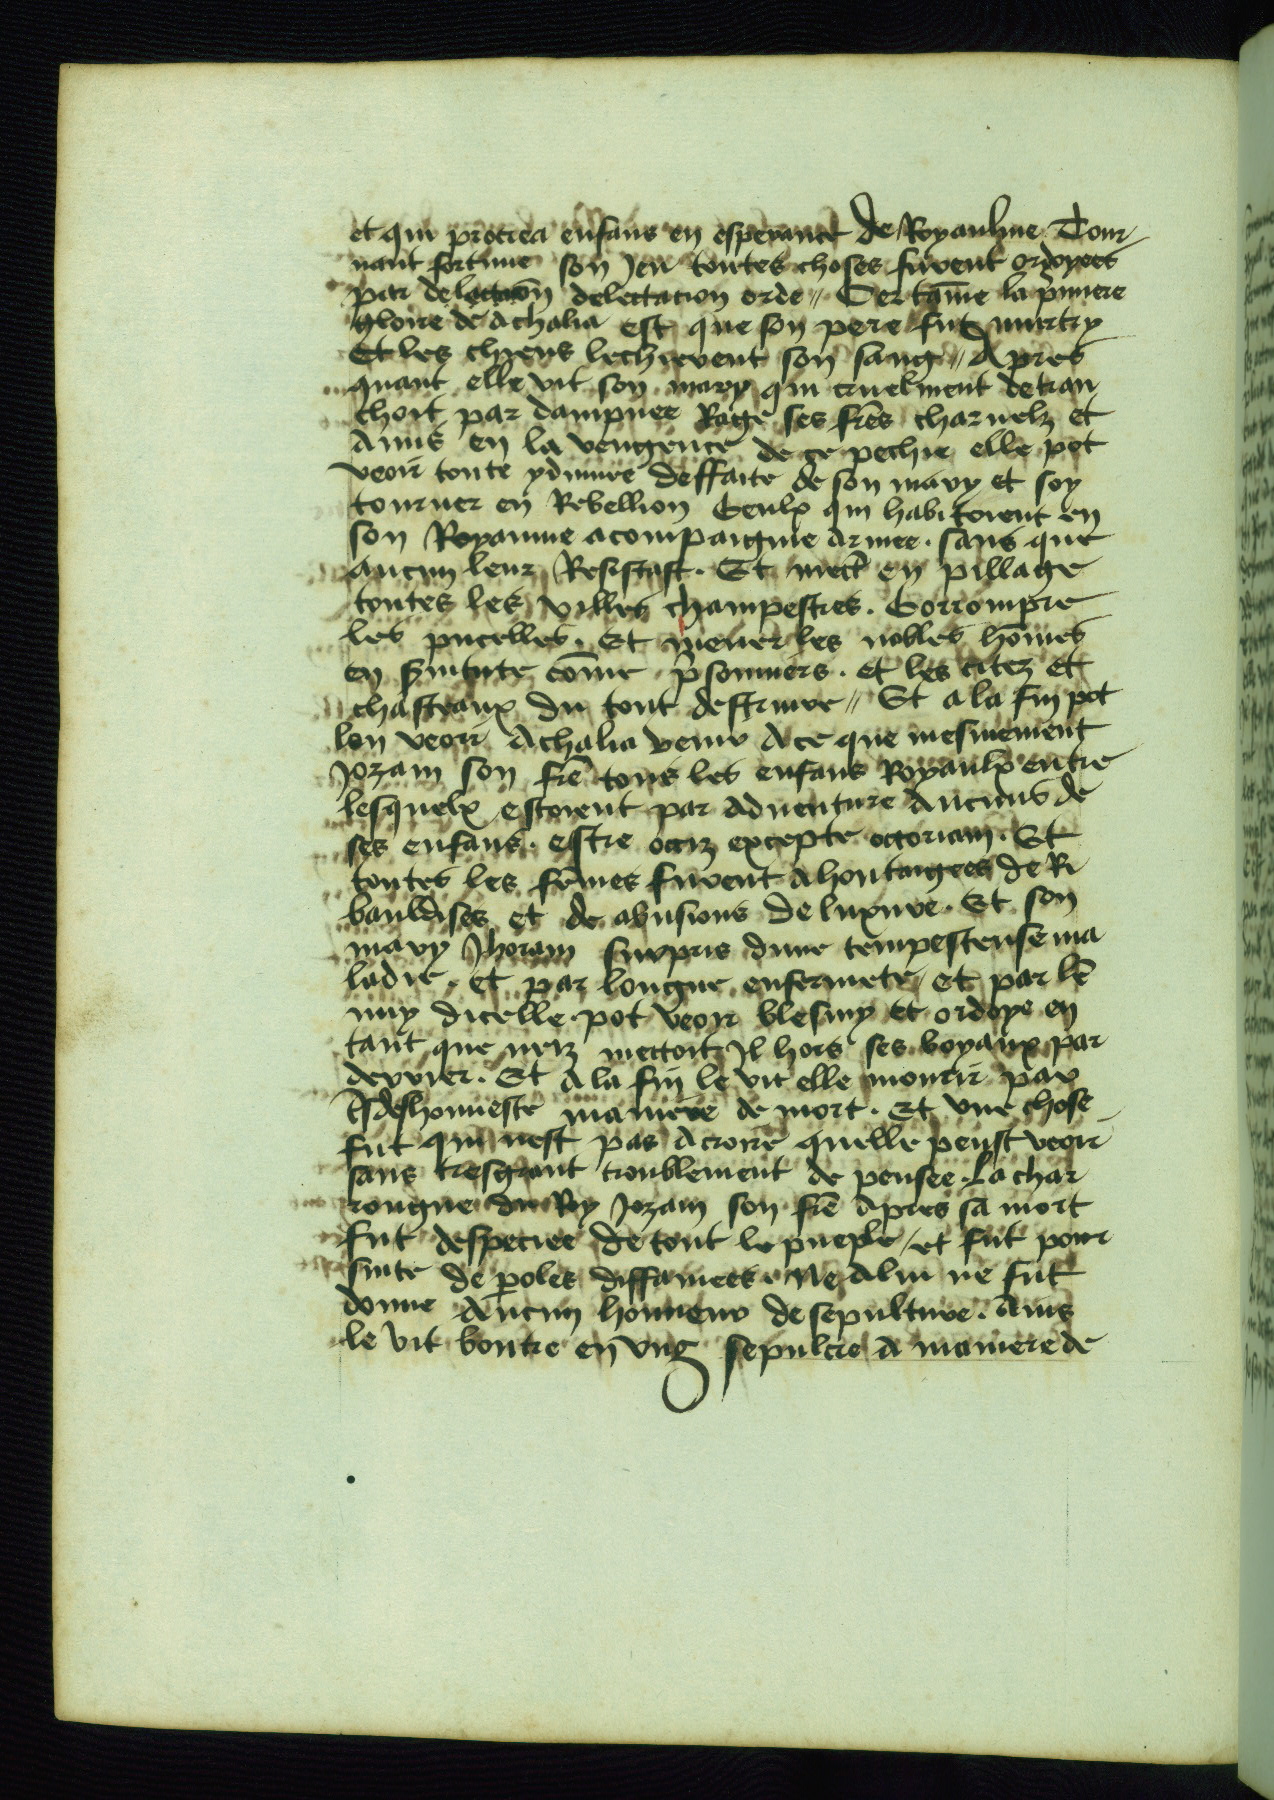 et qui procrea enfans en esperance de Royaulme. Tour
nant fortune son Jeu toutes choses furent ordoyees
par delectacōn delectacion orde // Certāme la p̄miere
gloire de Athalia est que son pere fut murtry
Et les chiens lechierent son sang // Apres
quant elle vit son mary qui cruelment detran
choit par dampnee Rage ses frēs charnelz et
Amis en la vengence de ce pechie elle pot
veoir toute ydumee deffaite de son mary et soy
tourner en Rebellion Ceulx qui habitoient en
son Royaume acompaignie armee. sans que
aucun leur Resistast. Et mectr̄ en pillage
toutes les villes champestres. Corrompre
les pucelles. Et mener les nobles hōmes
en s̄uitute cōme p̄sonniers. et les citez et
chasteaux du tout destruire // Et a la fin pot
len veoir Athalia venir Ace que mesmement
Jozam son frē tous les enfans Royaulx entre
lesquelx estoient par Aduenture Aucuns de
ses enfans. estre occiz excepte ottoriam. Et
toutes les fēmes furent Ahontaigees de Ri
bauldises et de abusions de luxure. Et son
mary Jhoram surpris dune tempesteuse ma
ladie. et par longue enfermete et par lē
nuy dicelle. pot veoir blesmy et ordoye en
tant que mettoit Il hors ses boyaux par
derrier. Et A la fin le vit elle mourir par
deshonneste maniere de mort. Et vne chose
fut qui nest pas Acroire quelle peust veoir
sans tresgrant troublement de pensee. La char
rongne du Roy Jozam son frē Apres sa mort
fut despeciee de tout le pueple / et fut pour
suite de p̄oles diffamees. Ne Alui ne fut
donne Aucun honneur de sepulture. Ains
le vit boutre en vng sepulcre A maniere de